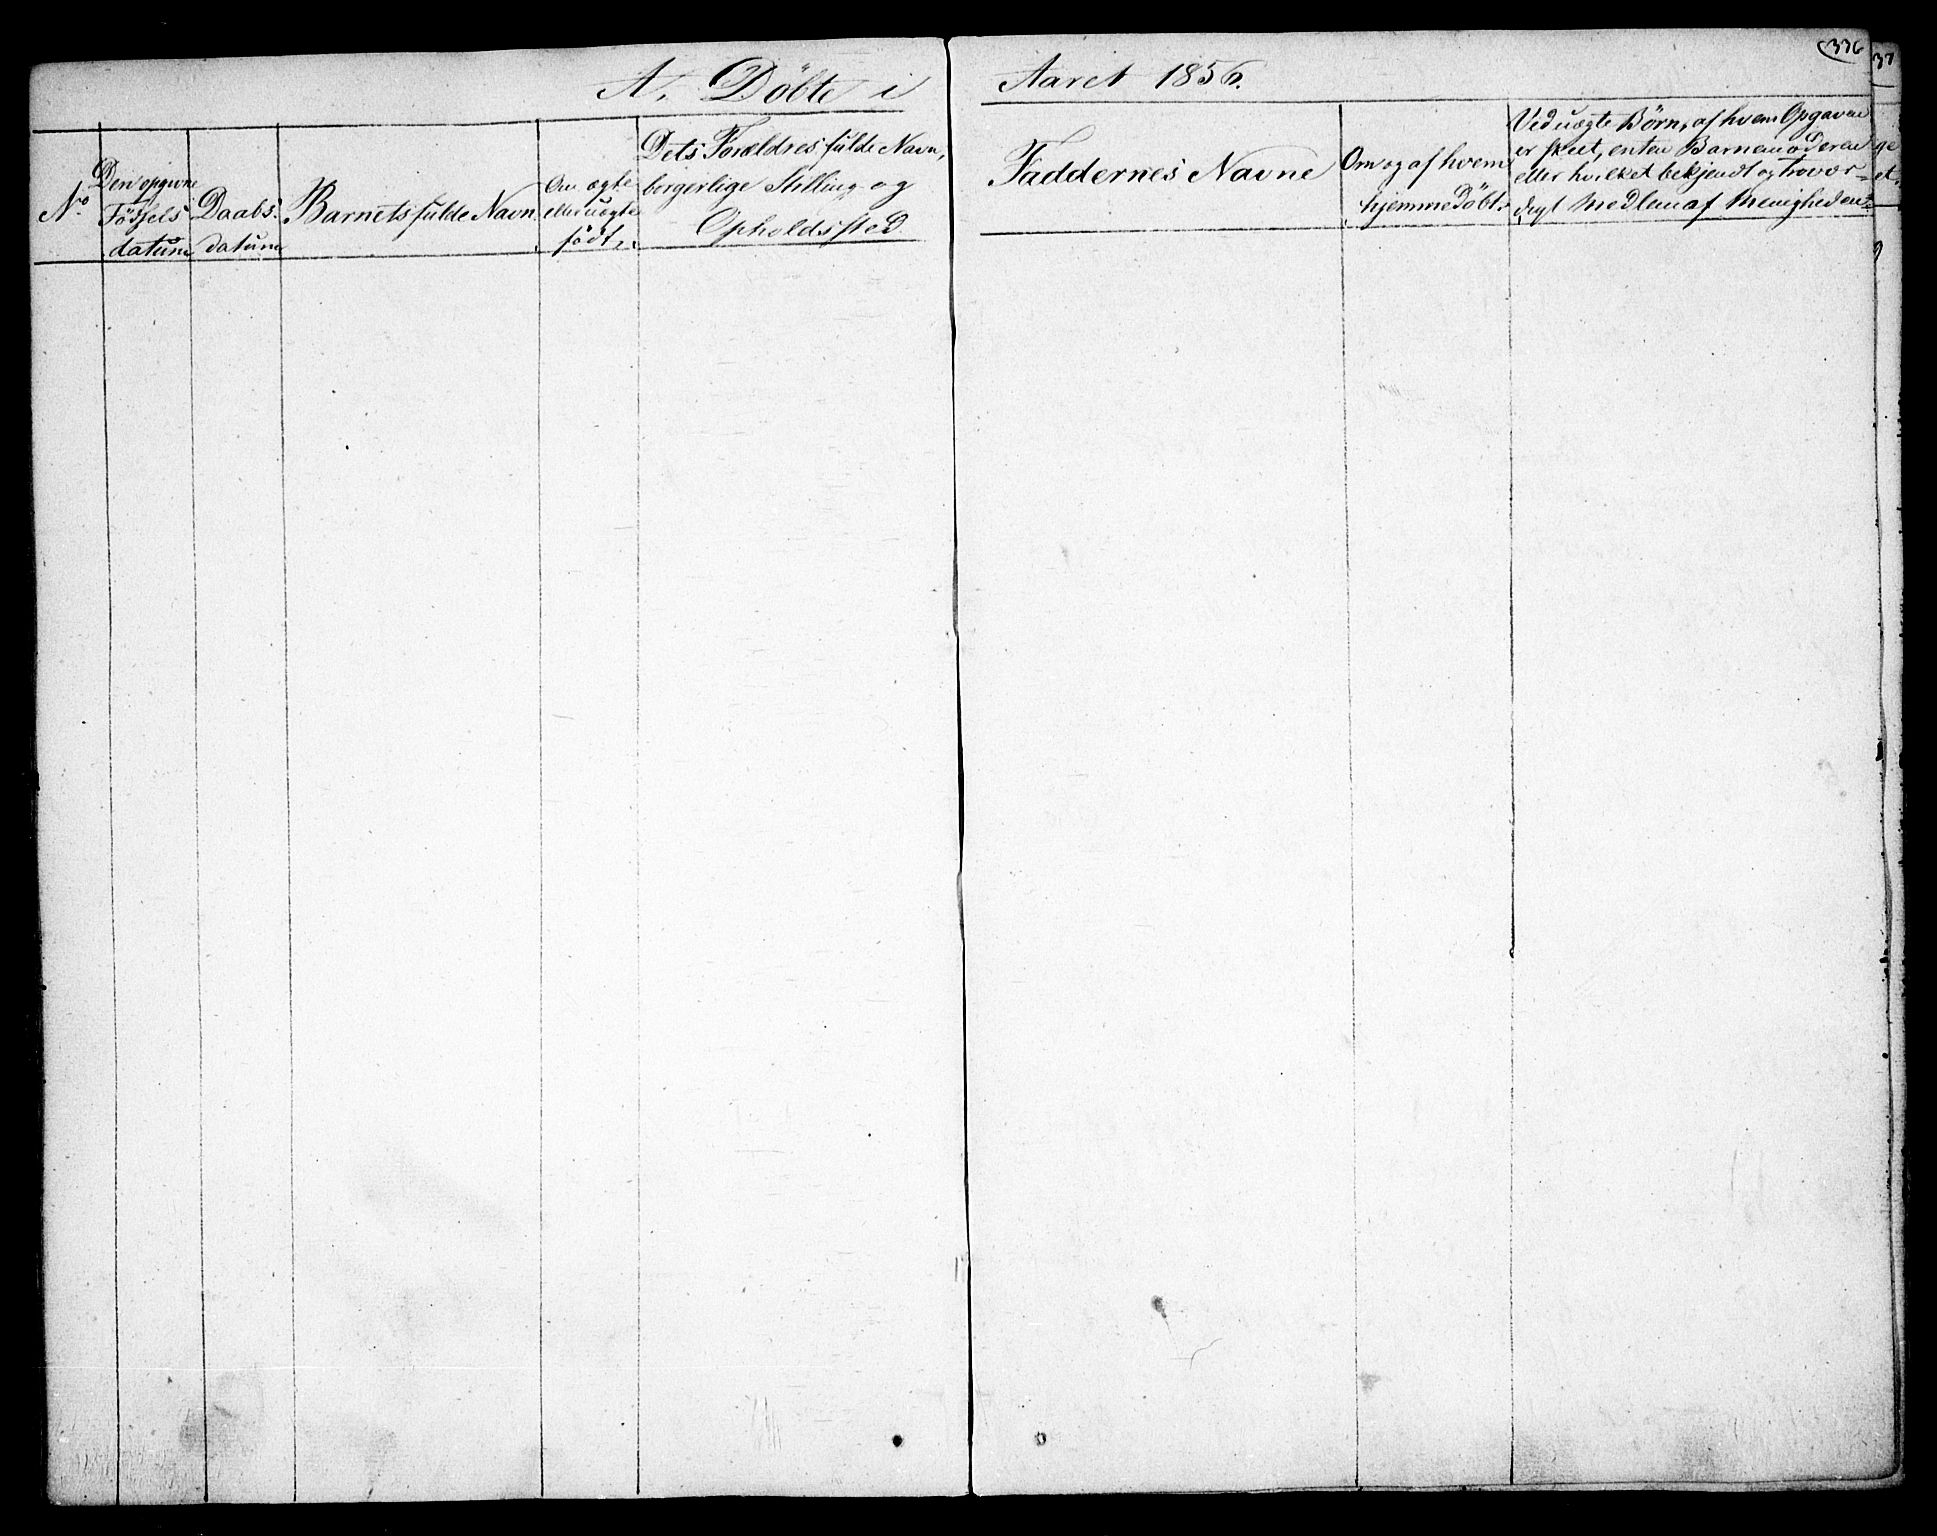 336
A. Döbte i Aaret 1856.
No
Den opgivne
Födsels
datum
Daabs
datum
Barnets fulde Navn
Om ægte
eller uægte
födt.
Dets Forældres fulde Navn,
borgerlige Stilling og
Opholdssted
Faddernes Navne
Om og af hvem
hjemmedöbt.
Ved uægte Börn, af hvem Opgaven
er skeet, enten Barnemoderen
eller hvilket bekjendt og trovær-
digt Medlem af Menigheden.
37